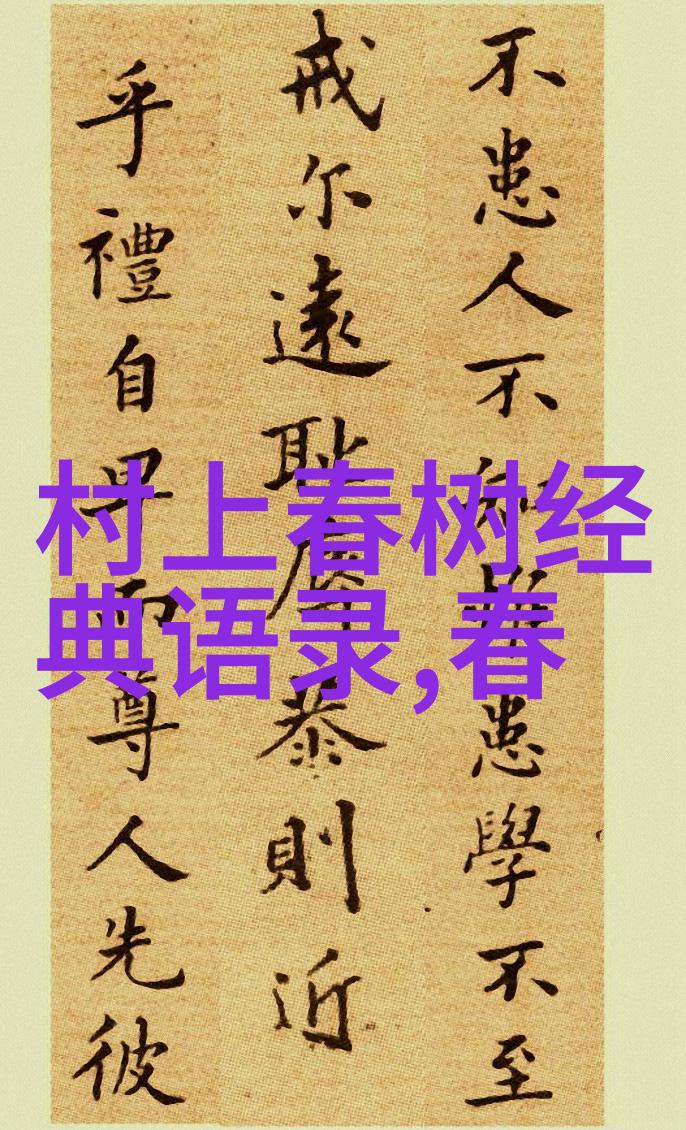 不患人不知惟患學不至
戒尔遠耻辱恭則近
乎禮自卑而尊人先彼
村上春树经
典语录,春